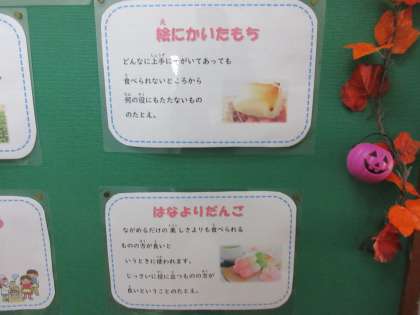 絵にかいたもち
どんなに上手に
食べられないところから
何の役にもたたないもの
のたとえ。
はなよりだんご
ながめるだけの美しさよりも食べられる
ものの方が良いと
いうときに使われます。
じっさいに役に立つものの方が
良いということのたとえ。